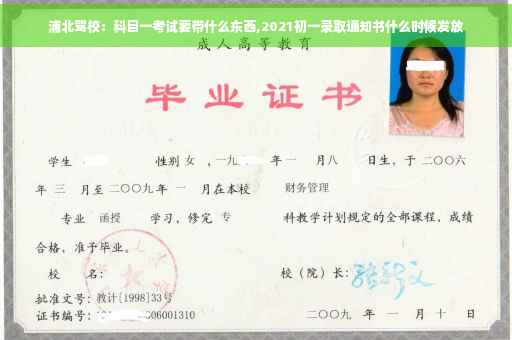 浦北驾校：科目一考试要带什么东西,2021初一录取通知书什么时候发放
成人高等教育
毕业证书
学生 性别 女 ，一九 年 一 月八 日生，于 二〇〇六
年 三 月至 二〇〇九 年 一 月在本校 财务管理
专业 函授 学习，修完 专 科教学计划规定的全部课程，成绩
合格，准予毕业。
校 名： 校（院）长：
批准文号：教计[1998]33号
证书编号： 606001310 二〇〇九 年 一 月 十 日